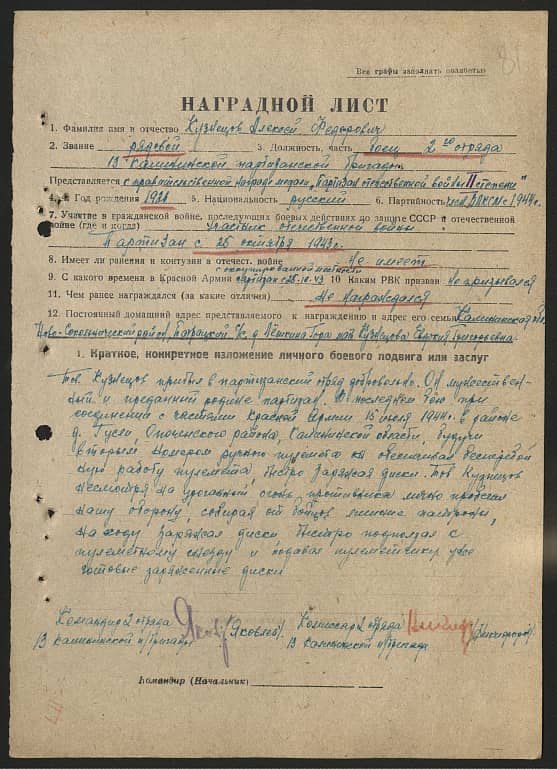 Все графы заполнять полностью
81
НАГРАДНОЙ ЛИСТ
1. Фамилия имя и отчество Кузнецов Алексей Федорович
2. Звание рядовой 3. Должность, часть боец 2го отряда
13 Калининской партизанской бригады
Представляется к правительственной награде медали „Партизан отечественной войны II степени"
4. Год рождения 1921 5. Национальность русский 6. Партийность член ВЛКСМ с 1944г.
7. Участие в гражданской войне, последующих боевых действиях по защите СССР и отечественной
войне (где и когда) Участник отечественной войны
Партизан с 25 октября 1943г.
8. Имеет ли ранения и контузии в отечест. войне Не имеет
с оккупированной
9. С какого времени в Красной Армии партизан с 28.10.43 10. Каким РВК призван Не призывался
11. Чем ранее награждался (за какие отличия) Не награждался
12. Постоянный домашний адрес представляемого к награждению и адрес его семьи Калининская обл.
Ново-Сокольнический район, с/с, д. мать Кузнецова Григорьевна
I. Краткое, конкретное изложение личного боевого подвига или заслуг
Тов. Кузнецов прибыл в партизанский отряд добровольно. Он мужествен-
ный и преданный родине партизан. В последнем бою при
соединении с частями Красной Армии 15 июля 1944г. в районе
д. Гусей, Опоченского района, Калининской области, будучи
вторым номером ручного пулемета он обеспечивал бесперебой
ную работу пулемета, быстро заряжая диски. Тов Кузнецов
несмотря на ураганный огонь противника лично прополз
нашу оборону, собирая от бойцов патроны,
на ходу заряжая диски, быстро подползал к
пулеметному гнезду и подавал пулеметчику уже
готовые заряженные диски
Командир 2 отряда Яков /Яковлев/ Комиссар 2 отряда
13 Калининской п/бригады 13 Калининской п/бригады
Командир (Начальник)